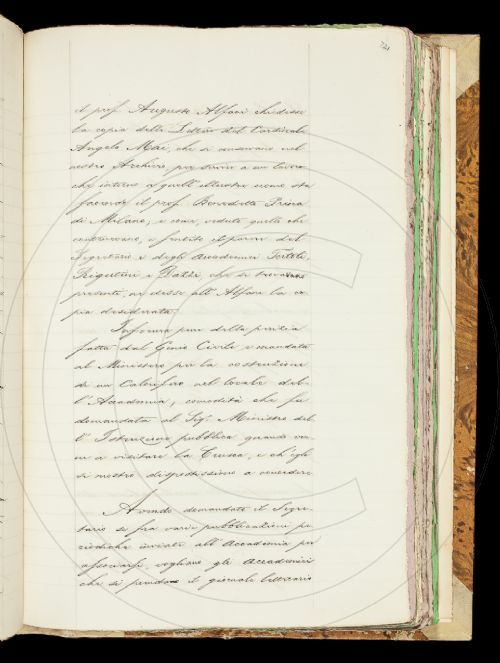 721
il prof. Augusto Alfani chiedesse
la copia delle Lettere del Cardinale
Angelo Mai, che si conservano nel
nostro Archivio, per servire a un lavoro
che intorno a quell'illustre uomo sta
facendo il prof. Benedetto Prina
di Milano; e come, vedute quelle che
, e sentito il parere del
Segretario e degli Accademici Tortoli,
Rigutini e Dazzi, che si trovavano
presenti, ei desse all'Alfani la co-
pia desiderata.
Informa pure della perizia
fatta dal Genio Civile e mandata
al Ministero per la costruzione
di un Calorifero nel locale del-
l'Accademia, comodità che fu
domandata al Sig. Ministro del-
l'Istruzione pubblica quando ven-
ne a visitare la Crusca, e ch'egli
si mostrò dispostissimo a concedere
Avendo domandato il Segre-
tario se fra varie pubblicazioni pe-
riodiche inviate all'Accademia per
associarsi, vogliano gli Accademici
che si prenda il giornale letterario